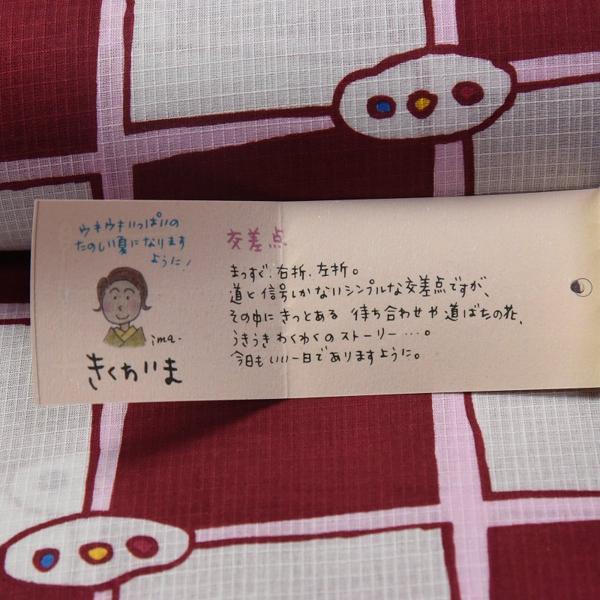 ウキウキいっぱいの
たのしい夏になります
ように！
ima.
きくちいま
交差点
まっすぐ、右折、左折。
道と信号しかないシンプルな交差点ですが、
その中にきっとある 待ち合わせや道ばたの花、
うきうきわくわくのストーリー…。
今日もいい一日でありますように。